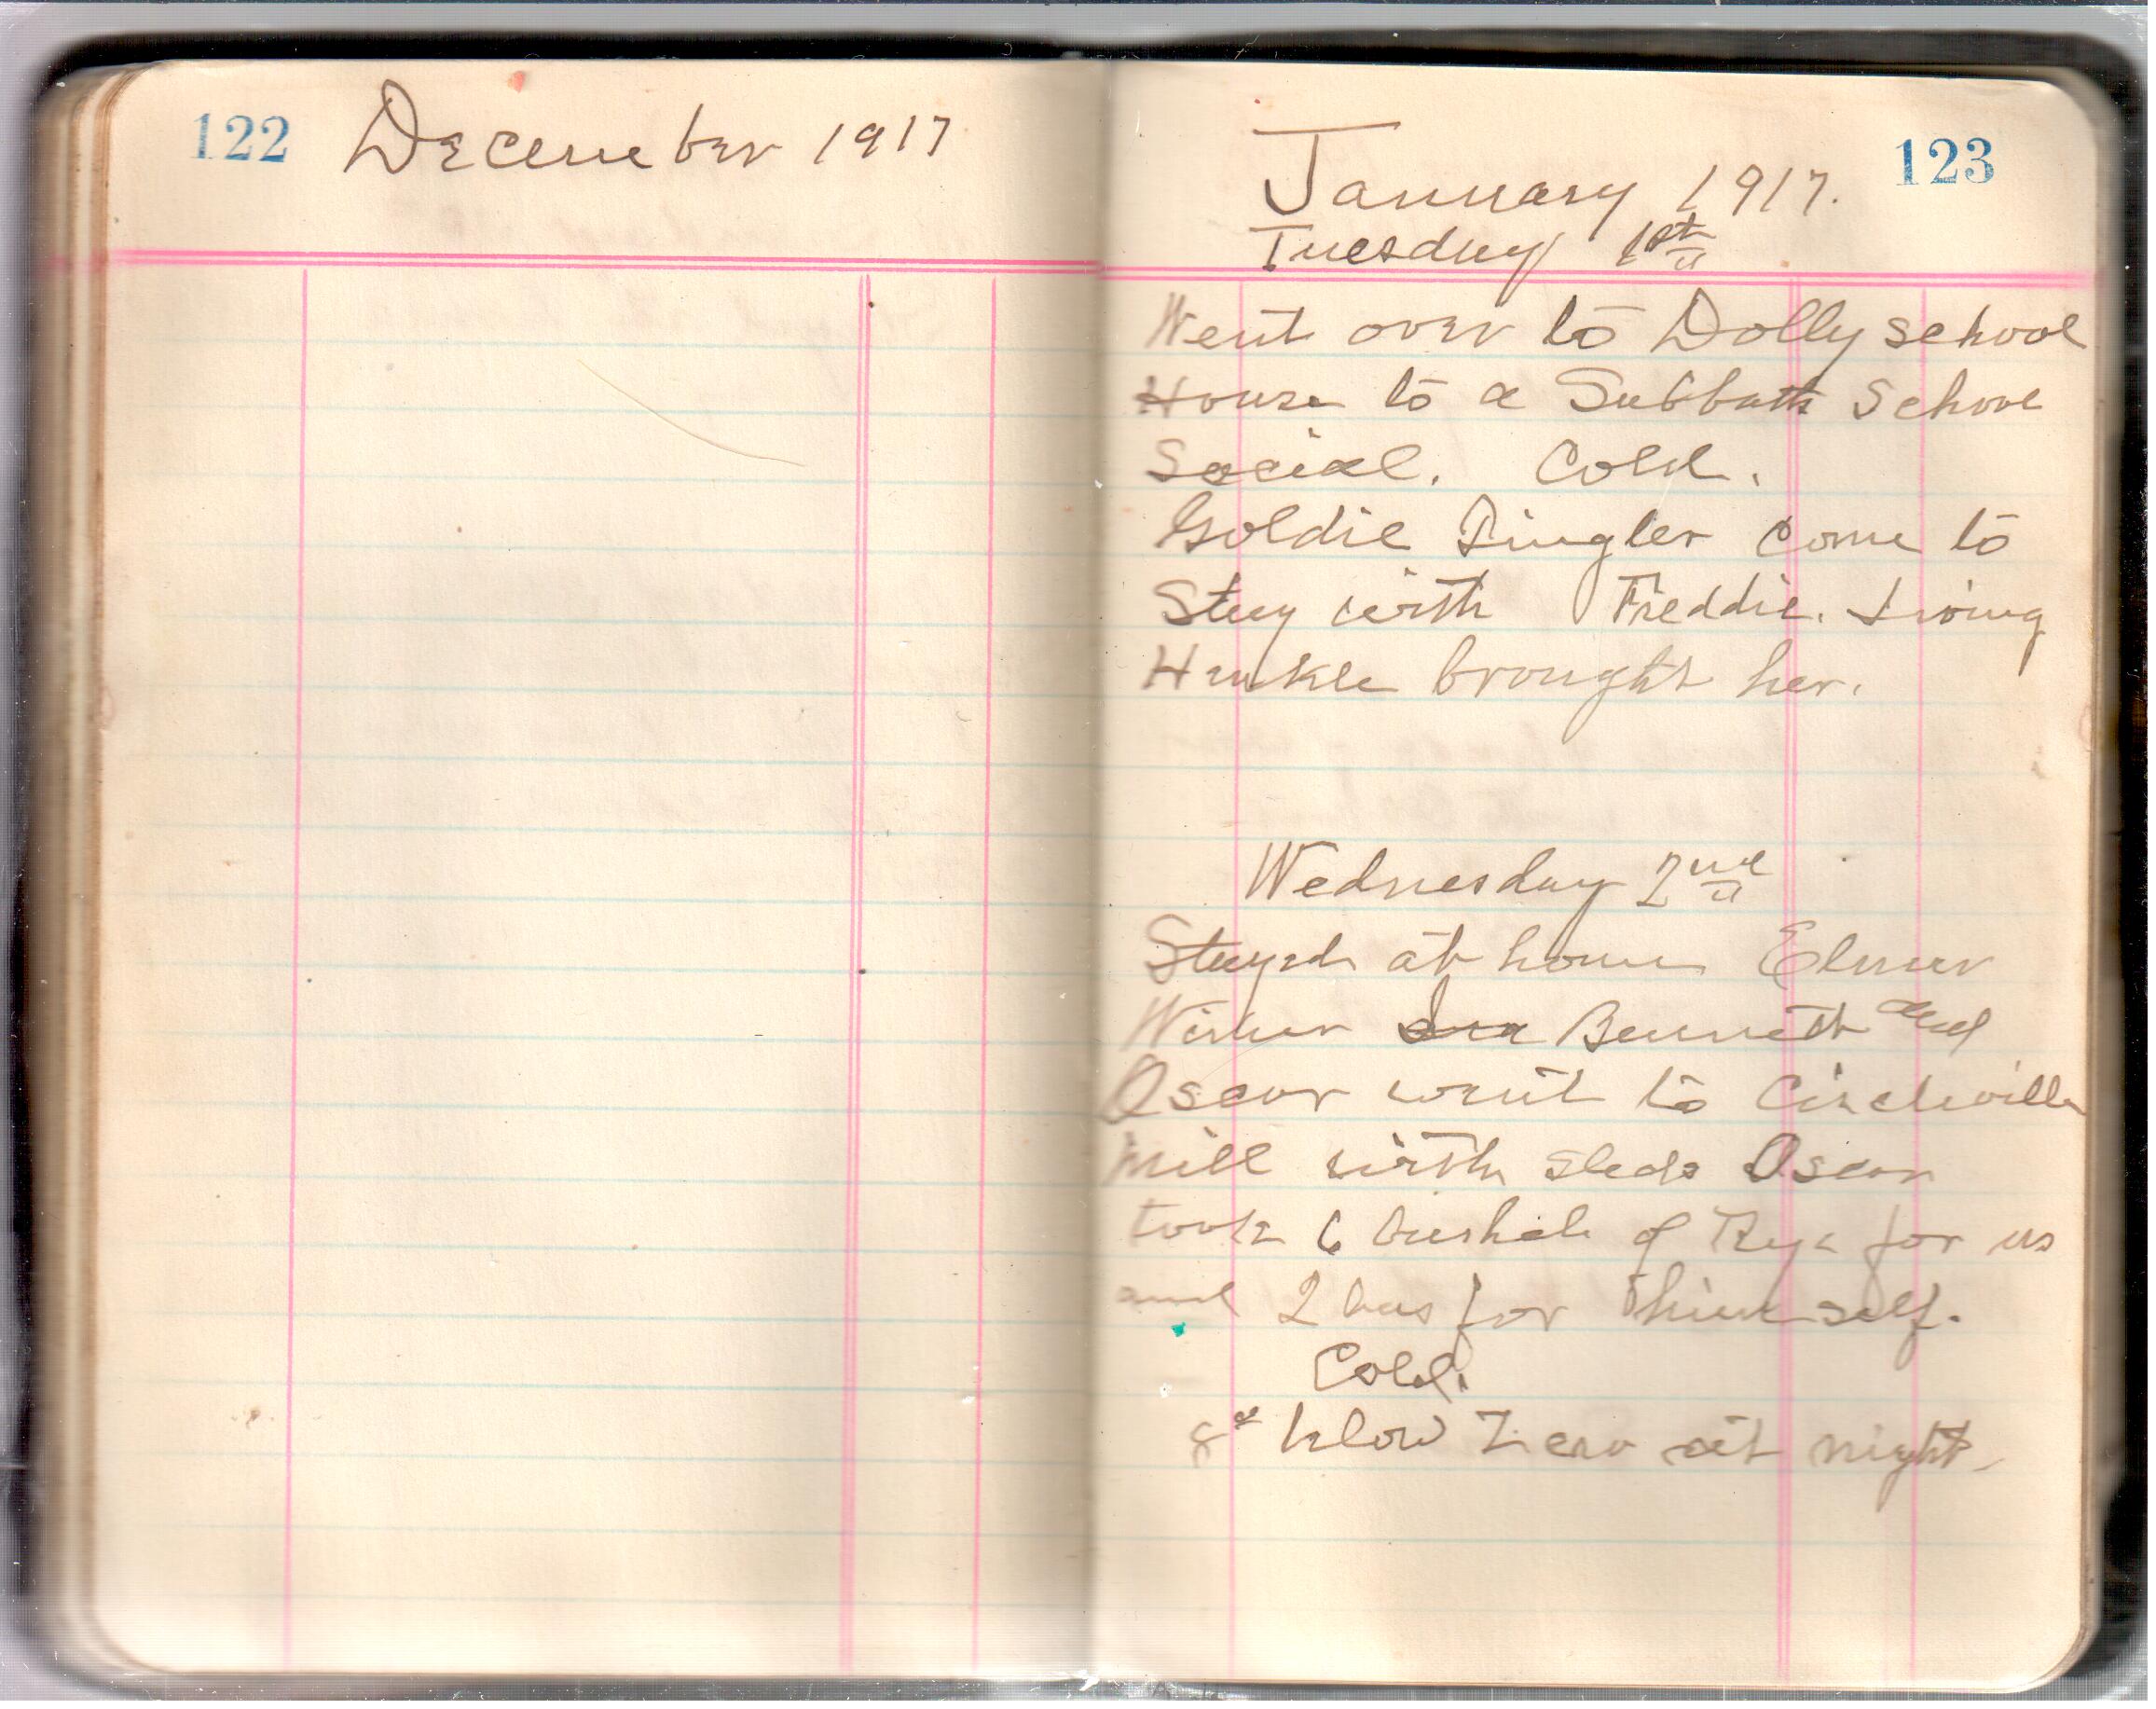 122 December 1917
123
January 1917.
Tuesday 1st
Went over to Dolly school
House to a Sabbath School
Social. Cold.
Goldie Dingler come to
Stay with Freddie. Irving
Hinkle brought her.
Wednesday 2nd
Stayed at home Elmer
Bennett and
Oscar went to Circleville
Mill with sleds Oscar
took 6 bushels of Rye for us
and 2 bus for himself.
Cold.
8° below Zero at night.